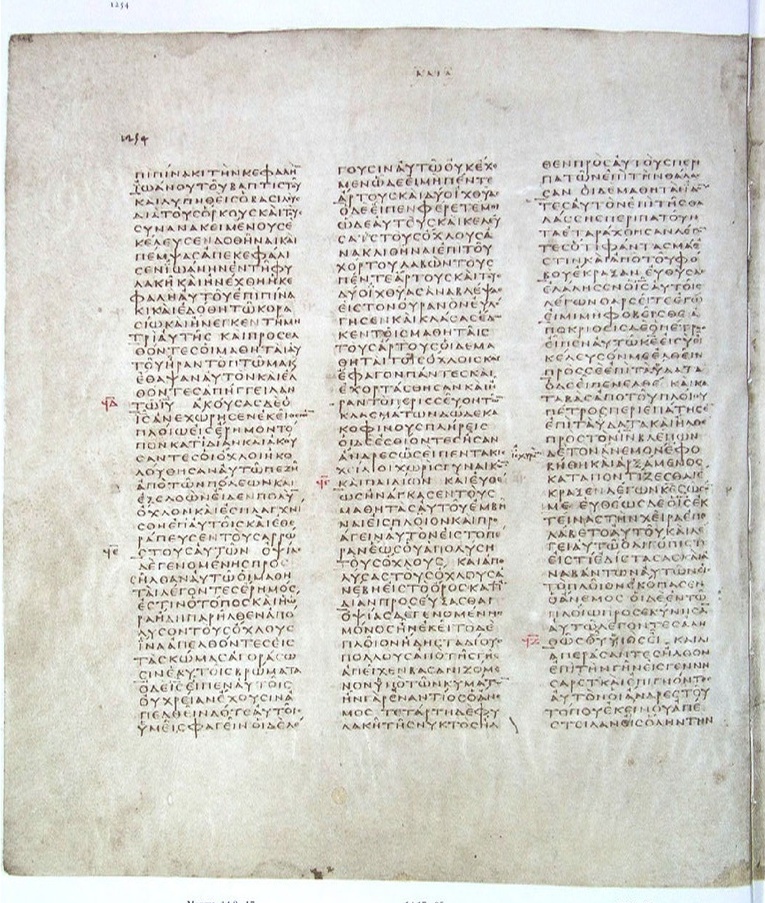 1254
ΚΑΤΑ
1254
ΠΙΠΙΝΑΚΙΤΗΝΚΕΦΑΛΗ
ΙΩΑΝΟΥΤΟΥΒΑΠΤΙϹΤΟΥ
ΚΑΙΛΥΠΗΘΕΙϹΟΒΑϹΙΛΕΥ
ΔΙΑΤΟΥϹΟΡΚΟΥϹΚΑΙΤΟΥ
ϹΥΝΑΝΑΚΕΙΜΕΝΟΥϹΕ
ΚΕΛΕΥϹΕΝΔΟΘΗΝΑΙΚΑΙ
ΠΕΜΨΑϹΑΠΕΚΕΦΑΛΙ
ϹΕΝΙΩΑΝΗΝΕΝΤΗΦΥ
ΛΑΚΗΚΑΙΗΝΕΧΘΗΗΚΕ
ΦΑΛΗΑΥΤΟΥΕΠΙΠΙΝΑ
ΚΙΚΑΙΕΔΟΘΗΤΩΚΟΡΑ
ϹΙΩΚΑΙΗΝΕΓΚΕΝΤΗΜΗ
ΤΡΙΑΥΤΗϹ ΚΑΙΠΡΟϹΕΛ
ΘΟΝΤΕϹΟΙΜΑΘΗΤΑΙΑΥ
ΤΟΥΗΡΑΝΤΟΠΤΩΜΑΚ
ΕΘΑΨΑΝΑΥΤΟΝΚΑΙΕΛ
ΘΟΝΤΕϹΑΠΗΓΓΕΙΛΑΝ
ΤΩΙΥ ΑΚΟΥϹΑϹΔΕΟ
ΙϹΑΝΕΧΩΡΗϹΕΝΕΚΕΙΘΕΝ
ΠΛΟΙΩΕΙϹΕΡΗΜΟΝΤΟ
ΠΟΝΚΑΤΙΔΙΑΝΚΑΙΑΚΟΥ
ϹΑΝΤΕϹΟΙΟΧΛΟΙΗΚΟ
ΛΟΥΘΗϹΑΝΑΥΤΩΠΕΖΗ
ΑΠΟΤΩΝΠΟΛΕΩΝΚΑΙ
ΕΞΕΛΘΩΝΕΙΔΕΝΠΟΛΥ
ΟΧΛΟΝΚΑΙΕϹΠΛΑΓΧΝΙ
ϹΘΗΕΠΑΥΤΟΙϹΚΑΙΕΘΕ
ΡΑΠΕΥϹΕΝΤΟΥϹΑΡΡΩ
ϹΤΟΥϹΑΥΤΩΝ ΟΨΙΑϹ
ΔΕΓΕΝΟΜΕΝΗϹΠΡΟϹ
ΗΛΘΑΝΑΥΤΩΟΙΜΑΘΗ
ΤΑΙΛΕΓΟΝΤΕϹΕΡΗΜΟϹ
ΕϹΤΙΝΟΤΟΠΟϹΚΑΙΗΩ
ΡΑΗΔΗΠΑΡΗΛΘΕΝΑΠΟ
ΛΥϹΟΝΤΟΥϹΟΧΛΟΥϹ
ΙΝΑΑΠΕΛΘΟΝΤΕϹΕΙϹ
ΤΑϹΚΩΜΑϹΑΓΟΡΑϹΩ
ϹΙΝΕΑΥΤΟΙϹΒΡΩΜΑΤΑ
ΟΔΕΙϹΕΙΠΕΝΑΥΤΟΙϹ
ΟΥΧΡΕΙΑΝΕΧΟΥϹΙΝΑ
ΠΕΛΘΕΙΝΔΟΤΕΑΥΤΟΙϹ
ΥΜΕΙϹΦΑΓΕΙΝΟΙΔΕΛΕ
ΓΟΥϹΙΝΑΥΤΩΟΥΚΕΧΟ
ΜΕΝΩΔΕΕΙΜΗΠΕΝΤΕ
ΑΡΤΟΥϹΚΑΙΔΥΟΙΧΘΥΑϹ
ΟΔΕΕΙΠΕΝΦΕΡΕΤΕΜΟΙ
ΩΔΕΑΥΤΟΥϹΚΑΙΚΕΛΕΥ
ϹΑΤΕΤΟΥϹΟΧΛΟΥϹΑ
ΝΑΚΛΙΘΗΝΑΙΕΠΙΤΟΥ
ΧΟΡΤΟΥΛΑΒΩΝΤΟΥϹ
ΠΕΝΤΕΑΡΤΟΥϹΚΑΙΤΟΥϹ
ΔΥΟΙΧΘΥΑϹΑΝΑΒΛΕΨΑϹ
ΕΙϹΤΟΝΟΥΡΑΝΟΝΕΥΛΟ
ΓΗϹΕΝΚΑΙΚΛΑϹΑϹΕΔΩ
ΚΕΝΤΟΙϹΜΑΘΗΤΑΙϹ
ΤΟΥϹΑΡΤΟΥϹΟΙΔΕΜΑ
ΘΗΤΑΙΤΟΙϹΟΧΛΟΙϹΚΑΙ
ΕΦΑΓΟΝΠΑΝΤΕϹΚΑΙ
ΕΧΟΡΤΑϹΘΗϹΑΝΚΑΙΗ
ΡΑΝΤΟΠΕΡΙϹϹΕΥΟΝΤΩ
ΚΛΑϹΜΑΤΩΝΔΩΔΕΚΑ
ΚΟΦΙΝΟΥϹΠΛΗΡΕΙϹ
ΟΙΔΕΕϹΘΙΟΝΤΕϹΗϹΑΝ
ΑΝΔΡΕϹΩϹΕΙΠΕΝΤΑΚΙϹ
ΧΕΙΛΙΟΙΧΩΡΙϹΓΥΝΑΙΚΩ
ΚΑΙΠΑΙΔΙΩΝ ΚΑΙΕΥΘΕ
ΩϹΗΝΑΓΚΑϹΕΝΤΟΥϹ
ΜΑΘΗΤΑϹΑΥΤΟΥΕΜΒΗ
ΝΑΙΕΙϹΠΛΟΙΟΝΚΑΙΠΡΟ
ΑΓΕΙΝΑΥΤΟΝΕΙϹΤΟΠΕ
ΡΑΝΕΩϹΟΥΑΠΟΛΥϹΗ
ΤΟΥϹΟΧΛΟΥϹ ΚΑΙΑΠΟ
ΛΥϹΑϹΤΟΥϹΟΧΛΟΥϹΑ
ΝΕΒΗΕΙϹΤΟΟΡΟϹΚΑΤΙ
ΔΙΑΝΠΡΟϹΕΥΞΑϹΘΑΙ
ΟΨΙΑϹΔΕΓΕΝΟΜΕΝΗϹ
ΜΟΝΟϹΗΝΕΚΕΙΤΟΔΕ
ΠΛΟΙΟΝΗΔΗϹΤΑΔΙΟΥϹ
ΠΟΛΛΟΥϹΑΠΟΤΗϹΓΗϹ
ΑΠΕΙΧΕΝΒΑϹΑΝΙΖΟΜΕ
ΝΟΝΥΠΟΤΩΝΚΥΜΑΤΩ
ΗΝΓΑΡΕΝΑΝΤΙΟϹΟΑΝΕ
ΜΟϹ ΤΕΤΑΡΤΗΔΕΦΥ
ΛΑΚΗΤΗϹΝΥΚΤΟϹΗΛ
ΘΕΝΠΡΟϹΑΥΤΟΥϹΠΕΡΙ
ΠΑΤΩΝΕΠΙΤΗΝΘΑΛΑϹ
ϹΑΝ ΟΙΔΕΜΑΘΗΤΑΙΙΔΟΝ
ΤΕϹΑΥΤΟΝΕΠΙΤΗϹΘΑ
ΛΑϹϹΗϹΠΕΡΙΠΑΤΟΥΝ
ΤΑΕΤΑΡΑΧΘΗϹΑΝΛΕΓΟΝ
ΤΕϹΟΤΙΦΑΝΤΑϹΜΑΕ
ϹΤΙΝΚΑΙΑΠΟΤΟΥΦΟ
ΒΟΥΕΚΡΑΞΑΝ ΕΥΘΥϹΔΕ
ΕΛΑΛΗϹΕΝΟΙϹΑΥΤΟΙϹ
ΛΕΓΩΝΘΑΡϹΕΙΤΕΕΓΩ
ΕΙΜΙΜΗΦΟΒΕΙϹΘΕ Α
ΠΟΚΡΙΘΕΙϹΔΕΟΠΕΤΡΟϹ
ΕΙΠΕΝΑΥΤΩΚΕΕΙϹΥΕΙ
ΚΕΛΕΥϹΟΝΜΕΕΛΘΕΙΝ
ΠΡΟϹϹΕΕΠΙΤΑΥΔΑΤΑ
ΟΔΕΕΙΠΕΝΕΛΘΕ ΚΑΙΚΑ
ΤΑΒΑϹΑΠΟΤΟΥΠΛΟΙΟΥ
ΠΕΤΡΟϹΠΕΡΙΕΠΑΤΗϹΕ
ΕΠΙΤΑΥΔΑΤΑΚΑΙΗΛΘΕ
ΠΡΟϹΤΟΝΙΝΒΛΕΠΩΝ
ΔΕΤΟΝΑΝΕΜΟΝΕΦΟ
ΒΗΘΗΚΑΙΑΡΞΑΜΕΝΟϹ
ΚΑΤΑΠΟΝΤΙΖΕϹΘΑΙΕ
ΚΡΑΞΕΝΛΕΓΩΝΚΕϹΩϹΟΝ
ΜΕ ΕΥΘΕΩϹΔΕΟΙϹΕΚ
ΤΕΙΝΑϹΤΗΝΧΕΙΡΑΕΠΕ
ΛΑΒΕΤΟΑΥΤΟΥΚΑΙΛΕ
ΓΕΙΑΥΤΩΟΛΙΓΟΠΙϹΤΕ
ΕΙϹΤΙΕΔΙϹΤΑϹΑϹΚΑΙΑ
ΝΑΒΑΝΤΩΝΑΥΤΩΝΕΙϹ
ΤΟΠΛΟΙΟΝΕΚΟΠΑϹΕΝ
ΟΑΝΕΜΟϹ ΟΙΔΕΕΝΤΩ
ΠΛΟΙΩΠΡΟϹΕΚΥΝΗϹΑ
ΑΥΤΩΛΕΓΟΝΤΕϹΑΛΗ
ΘΩϹΘΥΥΙΟϹΕΙ ΚΑΙΔΙ
ΑΠΕΡΑϹΑΝΤΕϹΗΛΘΟΝ
ΕΠΙΤΗΝΓΗΝΕΙϹΓΕΝΝΗ
ϹΑΡΕΤΚΑΙΕΠΙΓΝΟΝΤΕϹ
ΑΥΤΟΝΟΙΑΝΔΡΕϹΤΟΥ
ΤΟΠΟΥΕΚΕΙΝΟΥΑΠΕ
ϹΤΕΙΛΑΝΕΙϹΟΛΗΝΤΗΝ